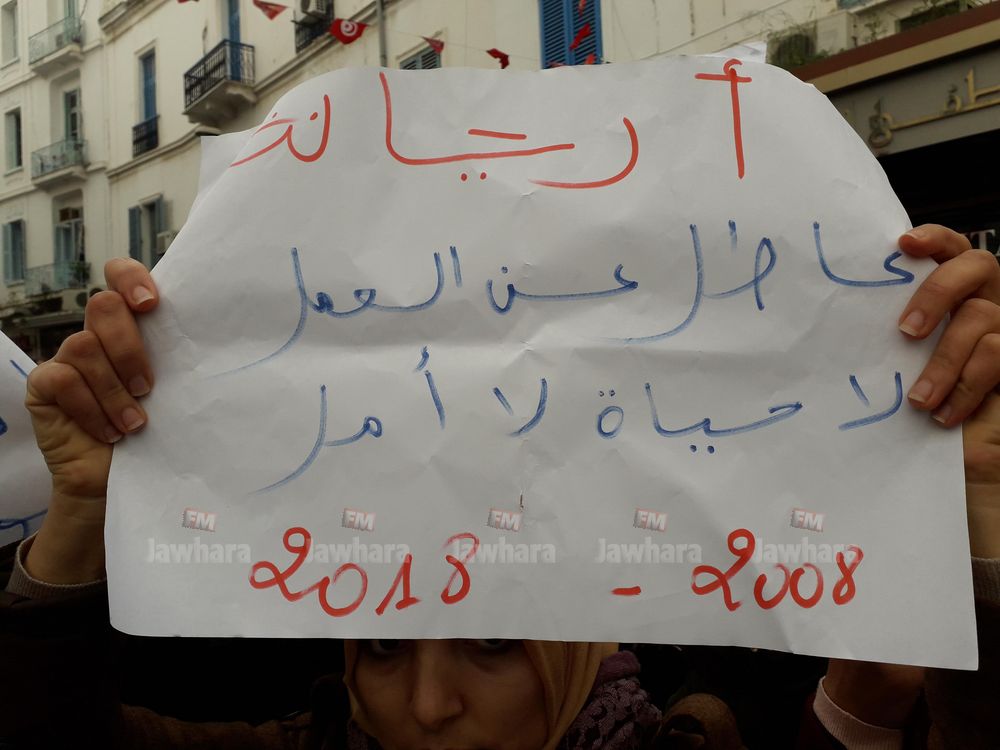 أريانة
عاطل عن العمل
لا حياة لا أمل
2018 - 2008
FM FM FM FM FM
Jawhara Jawhara Jawhara Jawhara Jawhara